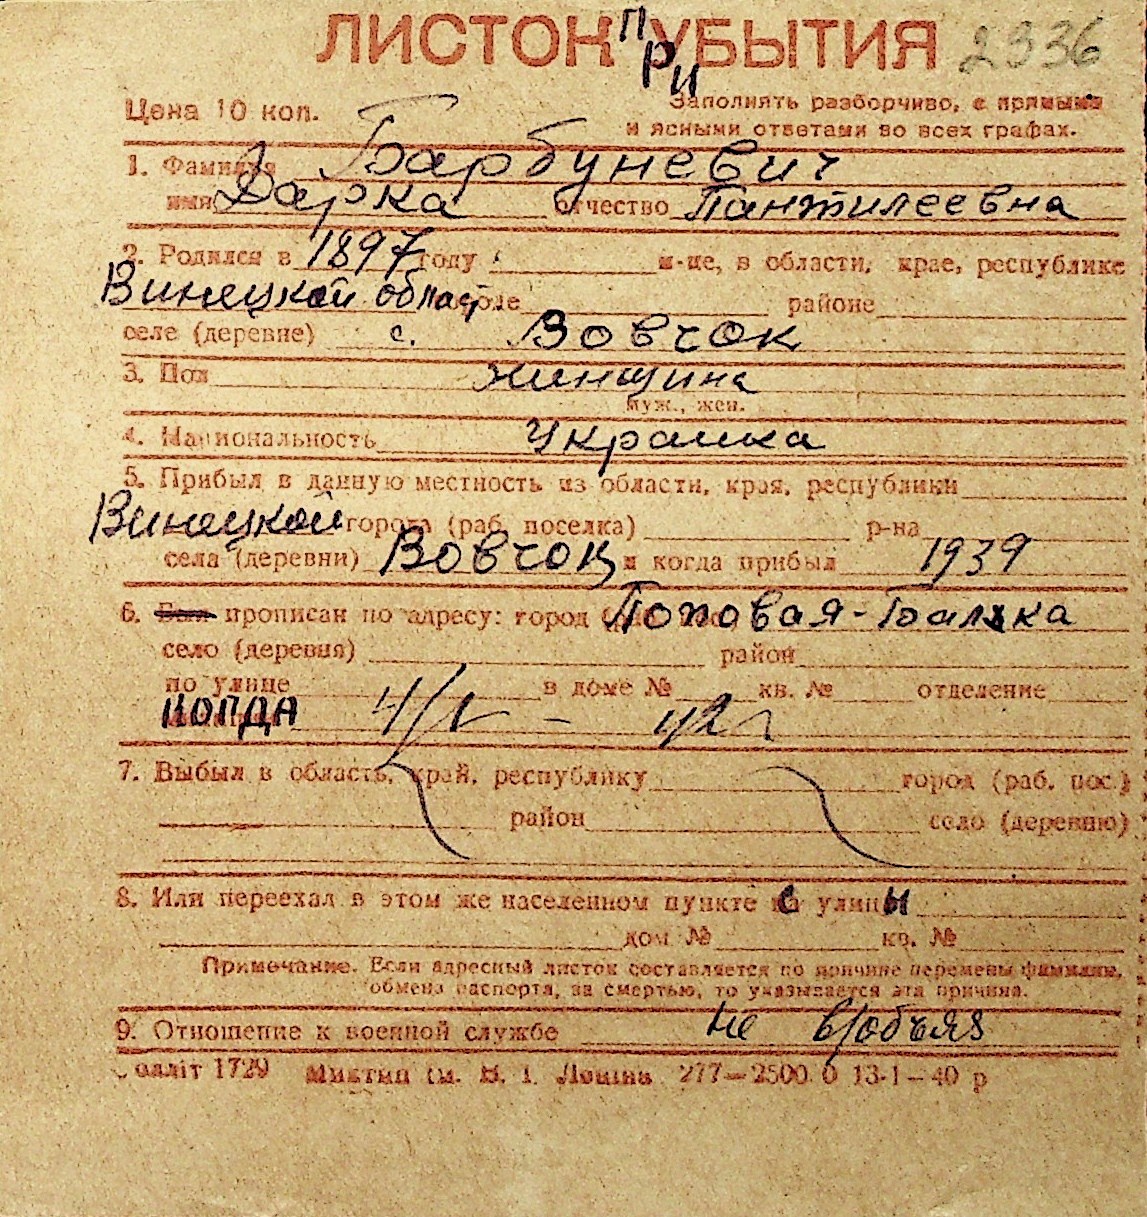 ЛИСТОК ПРИ УБЫТИЯ 2336
Цена 10 коп. Заполнять разборчиво, с прямыми
и ясными ответами во всех графах.
1. Фамилия Барбуневич
имя Дарка отчество Пантилеевна
2. Родился в 1897 году м-це, в области, крае, республике
Винецкой област городе районе
селе (деревне) с. Вовчок
3. Пол женщина
муж., жен.
4. Национальность Украинка
5. Прибыл в данную местность из области, края, республики
Винецкой города (раб. поселка) р-на
села (деревни) Вовчок и когда прибыл 1939
6. Был прописан по адресу: город Поповая-Балка
село (деревня) район
по улице в доме № кв. № отделение
КОГДА 4/I - 42 г
7. Выбыл в область, край, республику город (раб. пос.)
район село (деревню)
8. Или переехал в этом же населенном пункте с улицы
дом № кв. №
Примечание. Если адресный листок составляется по причине перемены фамилии,
обмена паспорта, за смертью, то указывается эта причина.
9. Отношение к военной службе не в/объяз
1729 277—2500 0 13-1—40 р